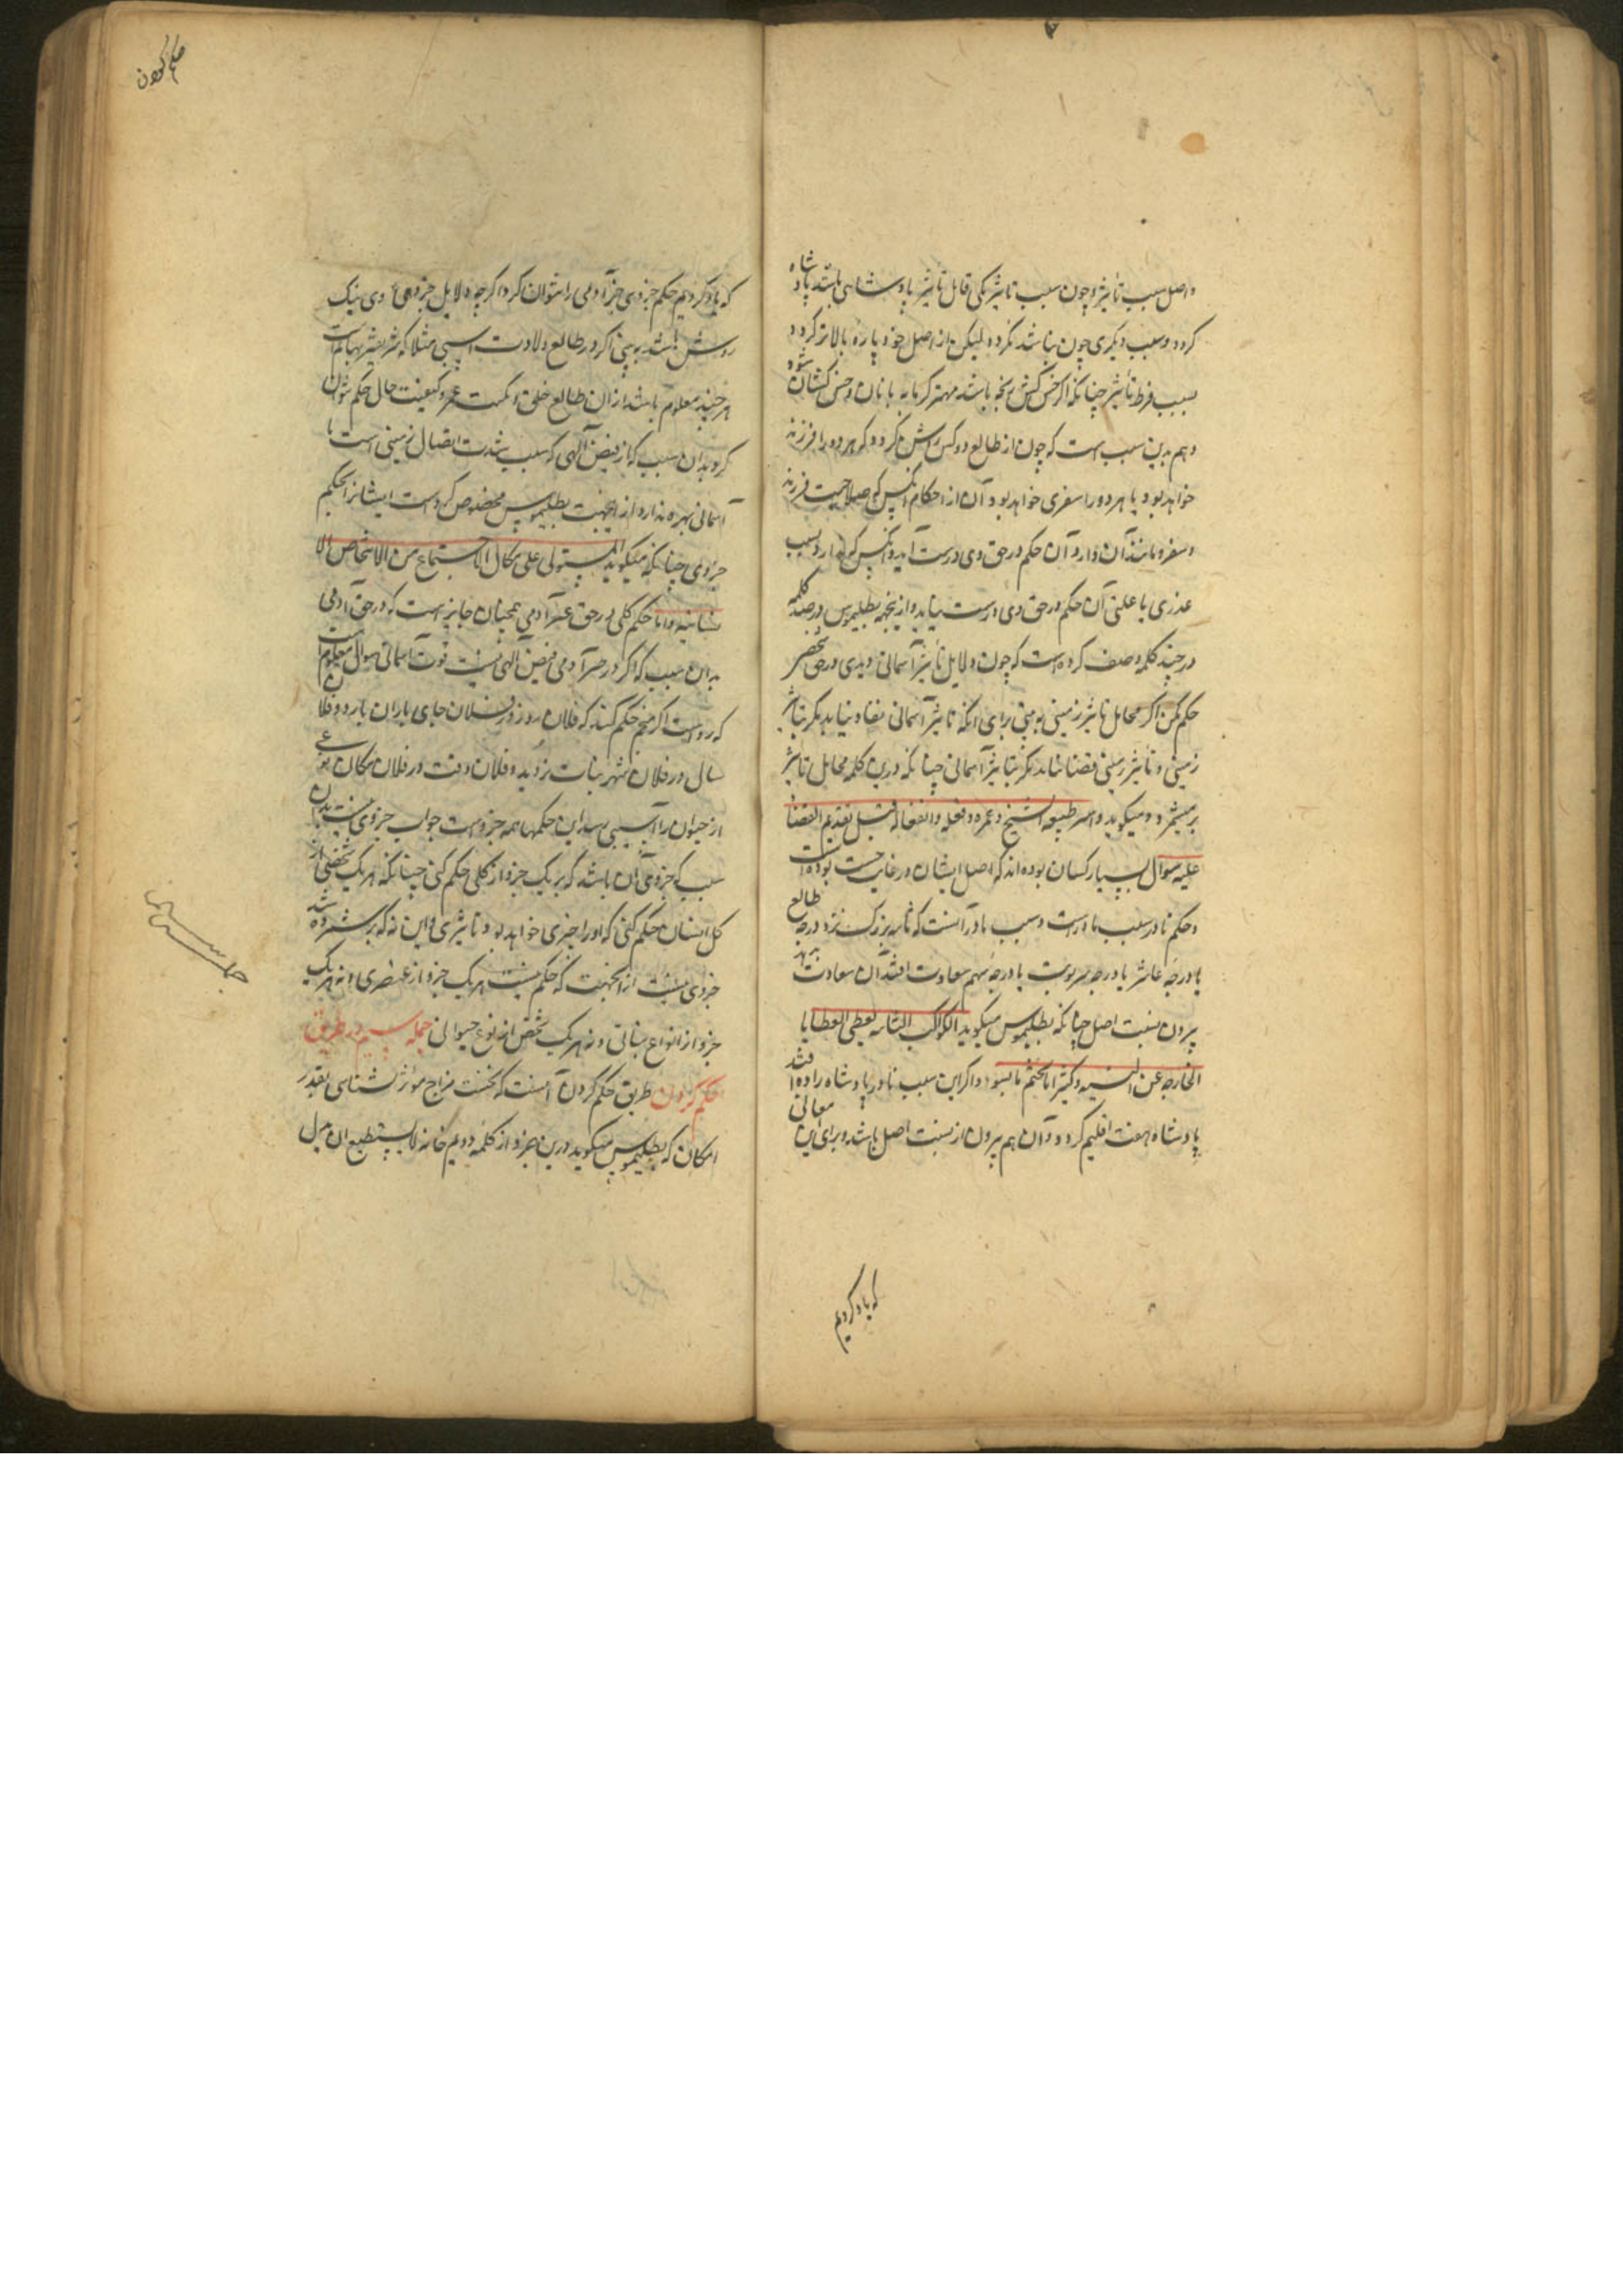 واصل سبب تاثیر و چون سبب تاثیر یکی قابل تاثیر پادشاهی باشد پادشاه
کردد و سبب دیکری چون نباشد نکردد لیکن از اصل خود پاره بالاتر کردد
بسبب فرط تأثیر چنانکه اکر خس کش باشد مهتر کرمابه بانان و خس کشان شود
و هم بدین سبب است که چون از طالع دو کس روشن کردد که هر دو را فرزند
خواهد بود یا هر دو را سفری خواهد بود آن از احکام آنکس که صلاحیت فرزند
و سفر و مانند آن دارد آن حکم در حق وی درست آید و آنکس که ندارد بسبب
عذری یا علتی آن حکم در حق وی درست نیاید و ازینجهه بطلیموس در صد کلمه
در چند کلمه وصف کرده است که چون دلایل تأثیر آسمانی دیدی در حق شخصی
حکم مکن اکر محایل تاثیر زمینی نه بینی برای انکه تاثیر آسمانی نفاد نیابد مکر بتاثیر
زمینی و تأثیر زمینی قضا نیابد مکر بتاثیر آسمانی چنانکه درین کلمه محایل تاثیر
برمیشمرد و میکوید و امر طبیعه الشیخ و عمره و فعله و انفعاله قبل تقدیم القضا
علیه سوال بسیار کسان بوده اند که اصل ایشان در غایت خست بوده است
و حکم نادر سبب نادرست و سبب نادر آنست که ثابته بزرک نزد درجه طالع
یا درجه عاشر یا درجه نیر نوبت یا درجه سهم سعادت افتد آن سعادت نه بد
بیرون نسبت اصل چنانکه بطلیموس میکوید الکواکب الثابته تعطی العطایا
الخارجه عن النسبه و کثیرا ما تختم بالسوء و اکر این سبب نادر پادشاه زاده را افتد
پادشاه هفت اقلیم کردد و آن هم بیرون از نسبت اصل باشد و برای این معانی
که یاد کردیم
حکم کردن
که یاد کردیم حکم جزوی جز آدمی را نتوان کرد اکرچه دلایل جزوی وی نیک
روشن باشد به بینی اکر در طالع ولادت اسبی مثلا که شریفتر بهایم است
هر چند معلوم باشد از ان طالع خلق و کمیت عمر و کیفیت حال حکم نتوان
کرد بدان سبب که از فیض آلهی که سبب شدت اتصال زمینی است با
آسمانی بهره ندارد از انجهت بطلیموس مخصوص کرده است ایشانرا بحکم
جزوی چنانکه میکوید المستولی علی مکان الاجتماع من الاشخاص الا
نسانیه و اما حکم کلی در حق غیر آدمی همچنان جایز است که در حق آدمی
بدان سبب که اکر در جز آدمی فیض آلهی نیست قوت آسمانی سوال معلوم است
که رواست اکر منجم حکم کند که فلان روز در فلان جای باران بارد و فلان
سال در فلان شهر نبات نروید و فلان وقت در فلان مکان نوعی
از حیوان را آسیبی رسد این حکمها همه جزو است جواب جزوی نیست بدان
سبب که جزوی آن باشد که بر یک جزو از کلی حکم کنی چنانکه هر یک شخصی از
کل انسان حکم کنی که او را چیزی خواهد بد و تاثیری و این نه که بر شمرده شد
جزوی نیست از انجهت که حکم نیست هر یک جزو از عنصری و نه هر یک
جزو از انواع نباتی و نه هر یک شخص از نوع حیوانی جمله سیم در طریق
حکم کردن طریق حکم کردن آنست که نخست مزاج مواثر بشناسی بقدر
امکان که بطلیموس میکوید درین جزو از کلمه دویم فانه لا یستطیع ان یدل
جمله سیم